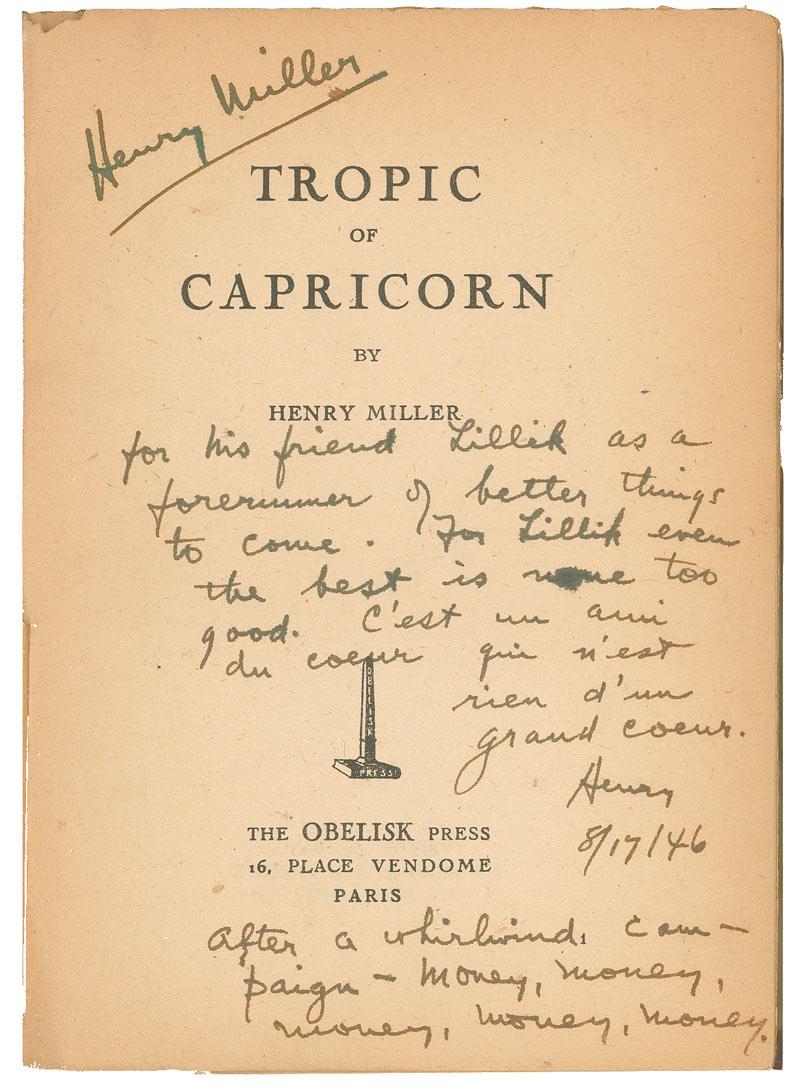 Henry Miller
TROPIC
OF
CAPRICORN
BY
HENRY MILLER
for his friend Lillik as a
forerunner of better things
to come. For Lillik even
the best is none too
good. C'est un ami
du coeur qui n'est
rien d'un
grand coeur.
OBELISK
PRESS
Henry
8/17/46
THE OBELISK PRESS
16, PLACE VENDOME
PARIS
After a whirlwind cam-
paign - Money, money,
money, money, money.